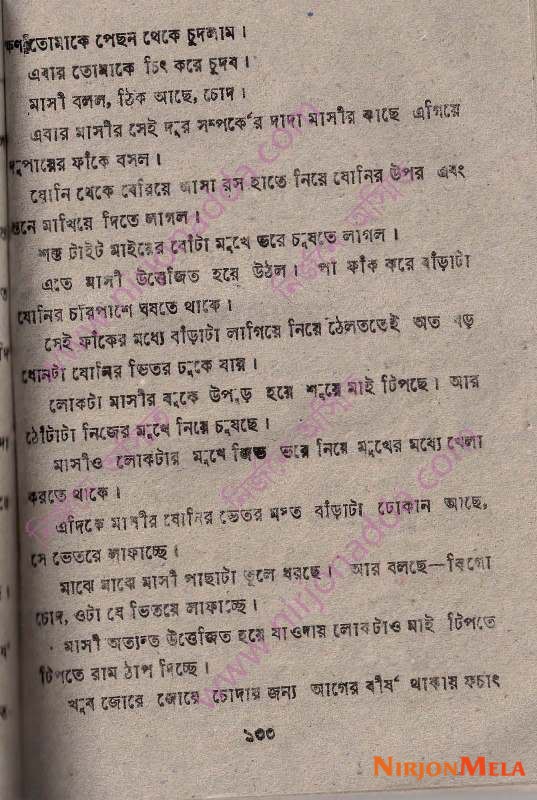 তোমাকে পেছন থেকে চুদলাম।
এবার তোমাকে চিৎ করে চুদব।
মাসী বলল, ঠিক আছে, চোদ।
এবার মাসীর সেই দূর সম্পর্কের দাদা মাসীর কাছে এগিয়ে
দুপায়ের ফাঁকে বসল।
যোনি থেকে বেরিয়ে আসা রস হাতে নিয়ে যোনির উপর এবং
স্তনে মাখিয়ে দিতে লাগল।
শক্ত টাইট মাইয়ের বোঁটা মুখে ভরে চুষতে লাগল।
এতে মাসী উত্তেজিত হয়ে উঠল। পা ফাঁক করে বাঁড়াটা
যোনির চারিপাশে ঘষতে থাকে।
সেই ফাঁকের মধ্যে বাঁড়াটা লাগিয়ে নিয়ে ঠেলতেই অত বড়
ধোনটা যোনির ভিতর ঢুকে যায়।
লোকটা মাসীর বুকে উপুড় হয়ে শুয়ে মাই টিপছে। আর
ঠোঁটটা নিজের মুখে নিয়ে চুষছে।
মাসীও লোকটার মুখে জিভ ভরে নিয়ে মুখের মধ্যে খেলা
করতে থাকে।
এদিকে মাসীর যোনির ভেতর মস্ত বাঁড়াটা ঢোকান আছে,
সে ভেতরে লাফাচ্ছে।
মাঝে মাঝে মাসী পাছাটা তুলে ধরছে। আর বলছে—কিগো
চোদ, ওটা যে ভিতরে লাফাচ্ছে।
মাসী অত্যন্ত উত্তেজিত হয়ে যাওয়ায় লোকটাও মাই টিপতে
টিপতে রাম ঠাপ দিচ্ছে।
খুব জোরে জোরে চোদার জন্য আগের বীর্য থাকায় ফচাৎ
১০০
NIRJONMELA
www.nirjonadda.com
www.nirjonadda.com